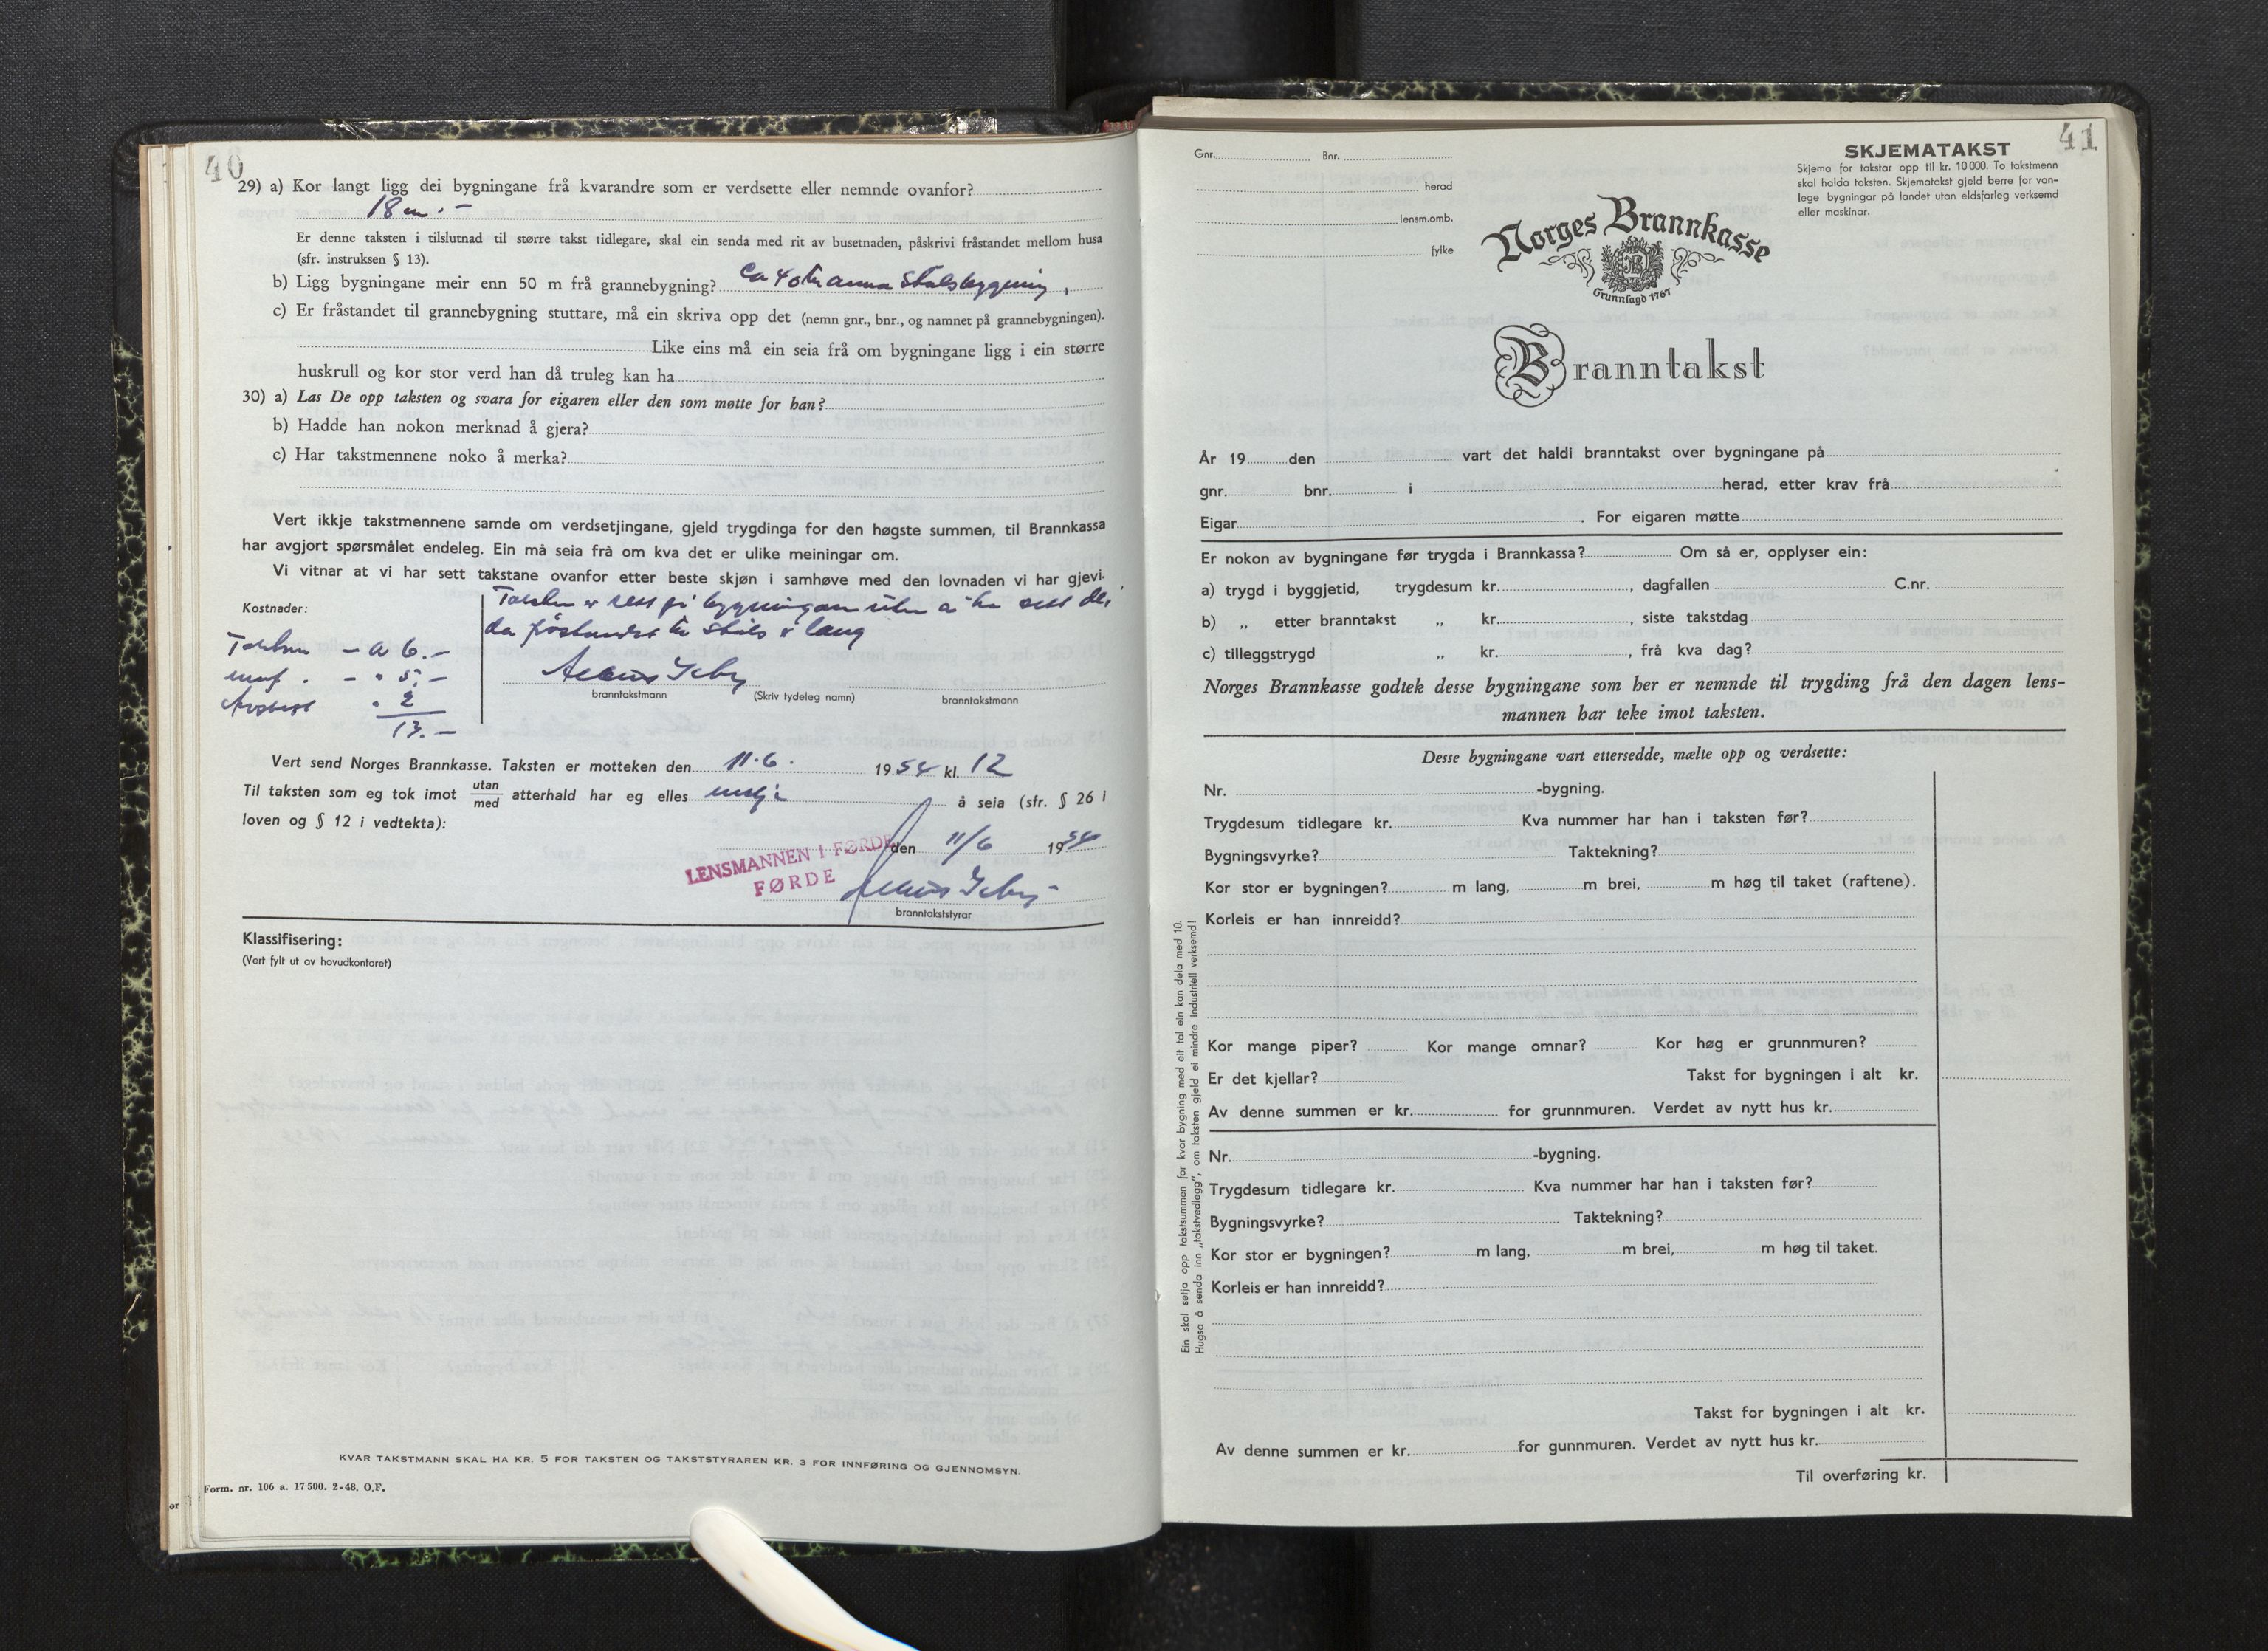 40
29) a) Kor langt ligg dei bygningane frå kvarandre som er verdsette eller nemnde ovanfor?
18 m. -
Er denne taksten i tilslutnad til større takst tidlegare, skal ein senda med rit av busetnaden, påskrivi fråstandet mellom husa
(sfr. instruksen § 13).
b) Ligg bygningane meir enn 50 m frå grannebygning? Ca 40 m anna Stølsbygning,
c) Er fråstandet til grannebygning stuttare, må ein skriva opp det (nemn gnr., bnr., og namnet på grannebygningen).
Like eins må ein seia frå om bygningane ligg i ein større
huskrull og kor stor verd han då truleg kan ha
30) a) Las De opp taksten og svara for eigaren eller den som møtte for han?
b) Hadde han nokon merknad å gjera?
c) Har takstmennene noko å merka?
Vert ikkje takstmennene samde om verdsetjingane, gjeld trygdinga for den høgste summen, til Brannkassa
har avgjort spørsmålet endeleg. Ein må seia frå om kva det er ulike meiningar om.
Vi vitnar at vi har sett takstane ovanfor etter beste skjøn i samhøve med den lovnaden vi har gjevi.
Kostnader:
Taksten er sett på bygningane uten å ha sett dei
da fråstandet til Støls er lang
Taksten - a 6.-
- " 5.-
" 2
13.-
branntakstmann (Skriv tydeleg namn) branntakstmann
Vert send Norges Brannkasse. Taksten er motteken den 11.6. 1954 kl. 12
Til taksten som eg tok imot utan/med atterhald har eg elles å seia (sfr. § 26 i
loven og § 12 i vedtekta):
LENSMANNEN I FØRDE
FØRDE
den 11/6 1954
branntakststyrar
Klassifisering:
(Vert fylt ut av hovudkontoret)
KVAR TAKSTMANN SKAL HA KR. 5 FOR TAKSTEN OG TAKSTSTYRAREN KR. 3 FOR INNFØRING OG GJENNOMSYN.
Form. nr. 106 a. 17 500. 2-48. O.F.
41
Gnr. Bnr.
herad
lensm.omb.
fylke
SKJEMATAKST
Skjema for takstar opp til kr. 10 000. To takstmenn
skal halda taksten. Skjematakst gjeld berre for van-
lege bygningar på landet utan eldsfarleg verksemd
eller maskinar.
Norges Brannkasse
Grunnlagd 1767
Branntakst
År 19 den vart det haldi branntakst over bygningane på
gnr. bnr. i herad, etter krav frå
Eigar. For eigaren møtte
Er nokon av bygningane før trygda i Brannkassa? Om så er, opplyser ein:
a) trygd i byggjetid, trygdesum kr. , dagfallen C.nr.
b) „ etter branntakst „ kr. , siste takstdag
c) tilleggstrygd „ kr. , frå kva dag?
Norges Brannkasse godtek desse bygningane som her er nemnde til trygding frå den dagen lens-
mannen har teke imot taksten.
Desse bygningane vart ettersedde, mælte opp og verdsette:
Nr. -bygning.
Trygdesum tidlegare kr. Kva nummer har han i taksten før?
Bygningsvyrke? Taktekning?
Kor stor er bygningen? m lang, m brei, m høg til taket (raftene).
Korleis er han innreidd?
Kor mange piper? Kor mange omnar? Kor høg er grunnmuren?
Er det kjellar? Takst for bygningen i alt kr.
Av denne summen er kr. for grunnmuren. Verdet av nytt hus kr.
Nr. -bygning.
Trygdesum tidlegare kr. Kva nummer har han i taksten før?
Bygningsvyrke? Taktekning?
Kor stor er bygningen? m lang, m brei, m høg til taket.
Korleis er han innreidd?
Takst for bygningen i alt kr.
Av denne summen er kr. for gunnmuren. Verdet av nytt hus kr.
Til overføring kr.
Ein skal setja opp takstsummen for kvar bygning med eit tal ein kan dela med 10.
Hugsa å senda inn „takstvedlegg”, om taksten gjeld ei mindre industriell verksemd!